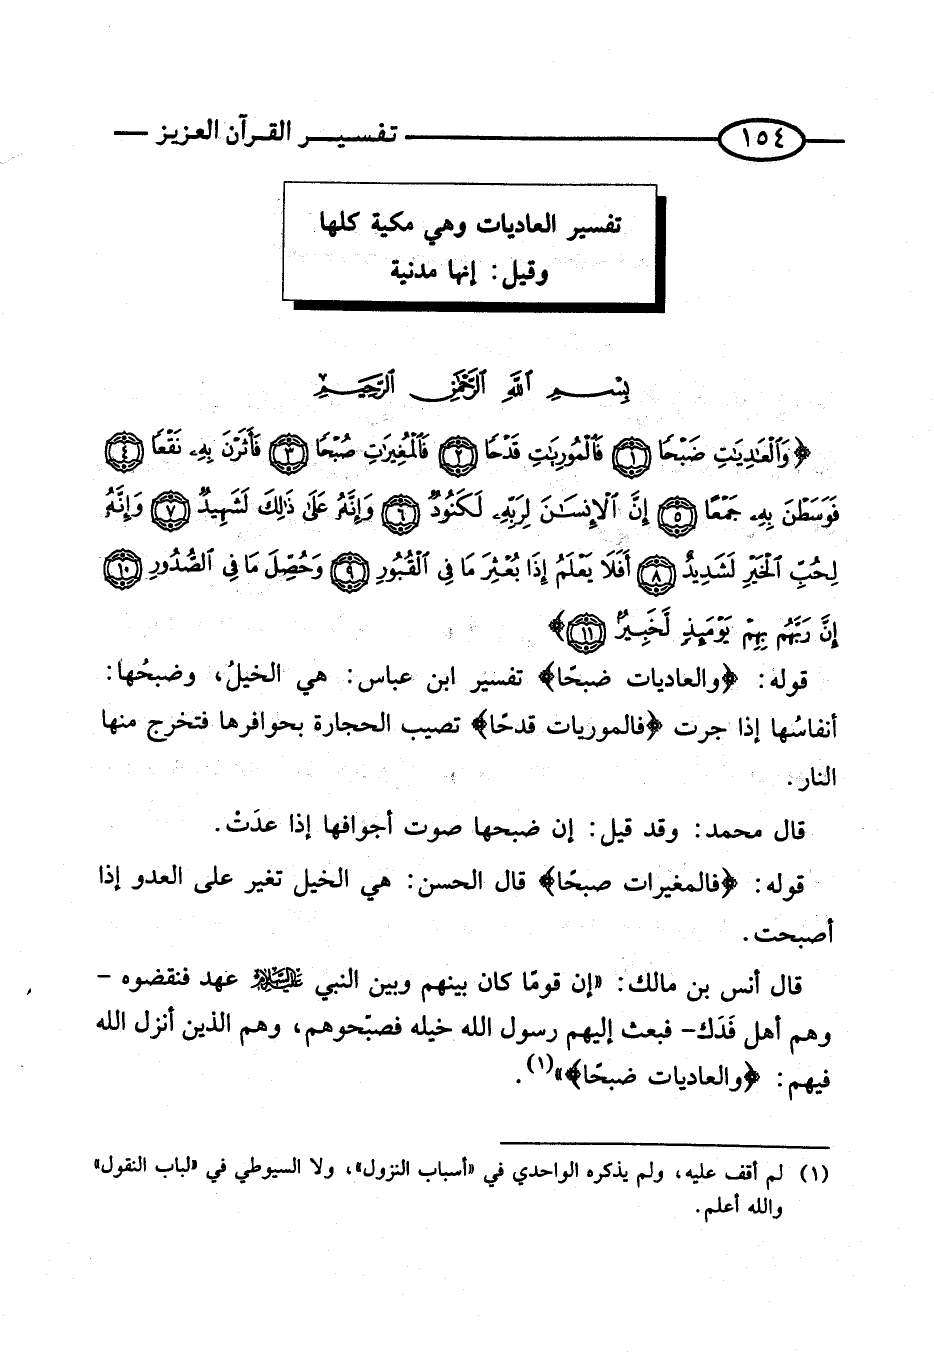 ١٥٤ تفسير القرآن العزيز
تفسير العاديات وهي مكية كلها
وقيل: إنها مدنية
بِسْمِ اللَّهِ الرَّحْمَٰنِ الرَّحِيمِ
﴿وَالْعَادِيَاتِ ضَبْحًا ١ فَالْمُورِيَاتِ قَدْحًا ٢ فَالْمُغِيرَاتِ صُبْحًا ٣ فَأَثَرْنَ بِهِ نَقْعًا ٤
فَوَسَطْنَ بِهِ جَمْعًا ٥ إِنَّ الْإِنسَانَ لِرَبِّهِ لَكَنُودٌ ٦ وَإِنَّهُ عَلَىٰ ذَٰلِكَ لَشَهِيدٌ ٧ وَإِنَّهُ
لِحُبِّ الْخَيْرِ لَشَدِيدٌ ٨ أَفَلَا يَعْلَمُ إِذَا بُعْثِرَ مَا فِي الْقُبُورِ ٩ وَحُصِّلَ مَا فِي الصُّدُورِ ١٠
إِنَّ رَبَّهُم بِهِمْ يَوْمَئِذٍ لَّخَبِيرٌ ١١﴾
قوله: ﴿والعاديات ضبحًا﴾ تفسير ابن عباس: هي الخيلُ، وضبحُها:
أنفاسُها إذا جرت ﴿فالموريات قدحًا﴾ تصيب الحجارة بحوافرها فتخرج منها
النار.
قال محمد: وقد قيل: إن ضبحها صوت أجوافها إذا عدَتْ.
قوله: ﴿فالمغيرات صبحًا﴾ قال الحسن: هي الخيل تغير على العدو إذا
أصبحت.
قال أنس بن مالك: «إن قومًا كان بينهم وبين النبي عليه السلام عهد فنقضوه –
وهم أهل فَدَك– فبعث إليهم رسول الله خيله فصبّحوهم، وهم الذين أنزل الله
فيهم: ﴿والعاديات ضبحًا﴾»(١).
(١) لم أقف عليه، ولم يذكره الواحدي في «أسباب النزول»، ولا السيوطي في «لباب النقول»
والله أعلم.